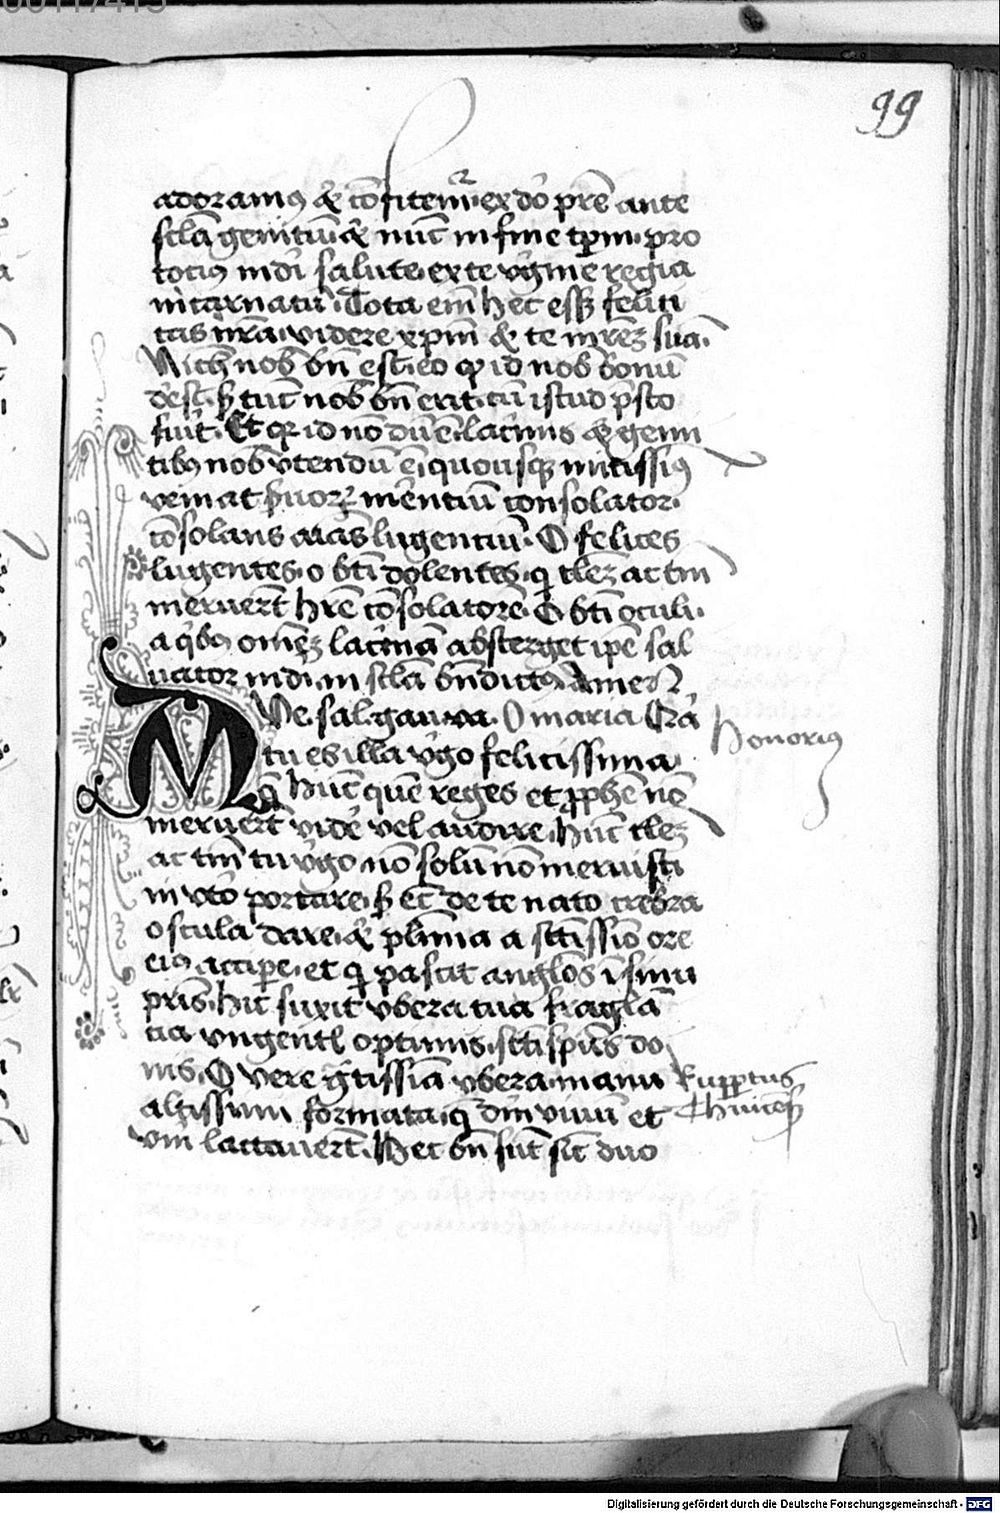 99
adoramꝰ & ꝯfitemur. ex dō pr̄e ante
scl̄a genitū & nūc in fine tp̄m. pro
totiꝰ mdī salute. ex te v̾gine regia
incarnatū. Tota em̄ hec esſꝫ felici
tas nr̄a. videre xp̄m & te mr̄eꝫ suā.
nob̄ bn̄ est. eo ꝙ id nob̄ bonū
dēst. sꝫ tūc nob̄ bn̄ erit. cū istud p̄sto
fuit̾. Et qꝛ id nō dū ē. lacͥmis & gemi
tibꝰ nob̄ vtendū ē. quousqꝫ mitissiꝰ
veniat suoꝝ merentiū consolator.
ꝯsolans aīas lugentiū. O felices
lugentes. o bt̄i dolentes. qͥ tleꝫ ac tm̄
meruer̄t hr̄e ꝯsolatorē. O bt̄i oculi.
a qͥbꝰ omēꝫ lacͥmā absterget ip̄e sal
uator mdī. in scl̄a bn̄dictꝰ. Amen.
Ve. sal. gau. va. O maria
Honoriꝰ
tu es illa v̾go felicissima
q̄ hūc quē reges et ꝓphē nō
meruer̄t vidē vel audire. hūc tleꝫ
ac tm̄ tu v̾go nō solū nō meruisti
in vt̾o portare. sꝫ ec̄ de te nato crebra
oscula dare. & plīma a scīssīo ore
eiꝰ accipe. et qͥ pascit angl̄os ī sinu
pr̄is. hic suxit vbera tua fraglā
tia vngentꝭ optimis. scī spūs do
nis. O vere gͣtissīa vbera. manu
Rup̱ertus
altissimi formata. q̄ dm̄ viuū et
Thuicēs̄
vm̄ lactauer̄t. Hec bn̄ sūt sic̄ duo
Digitalisierung gefördert durch die Deutsche Forschungsgemeinschaft - DFG